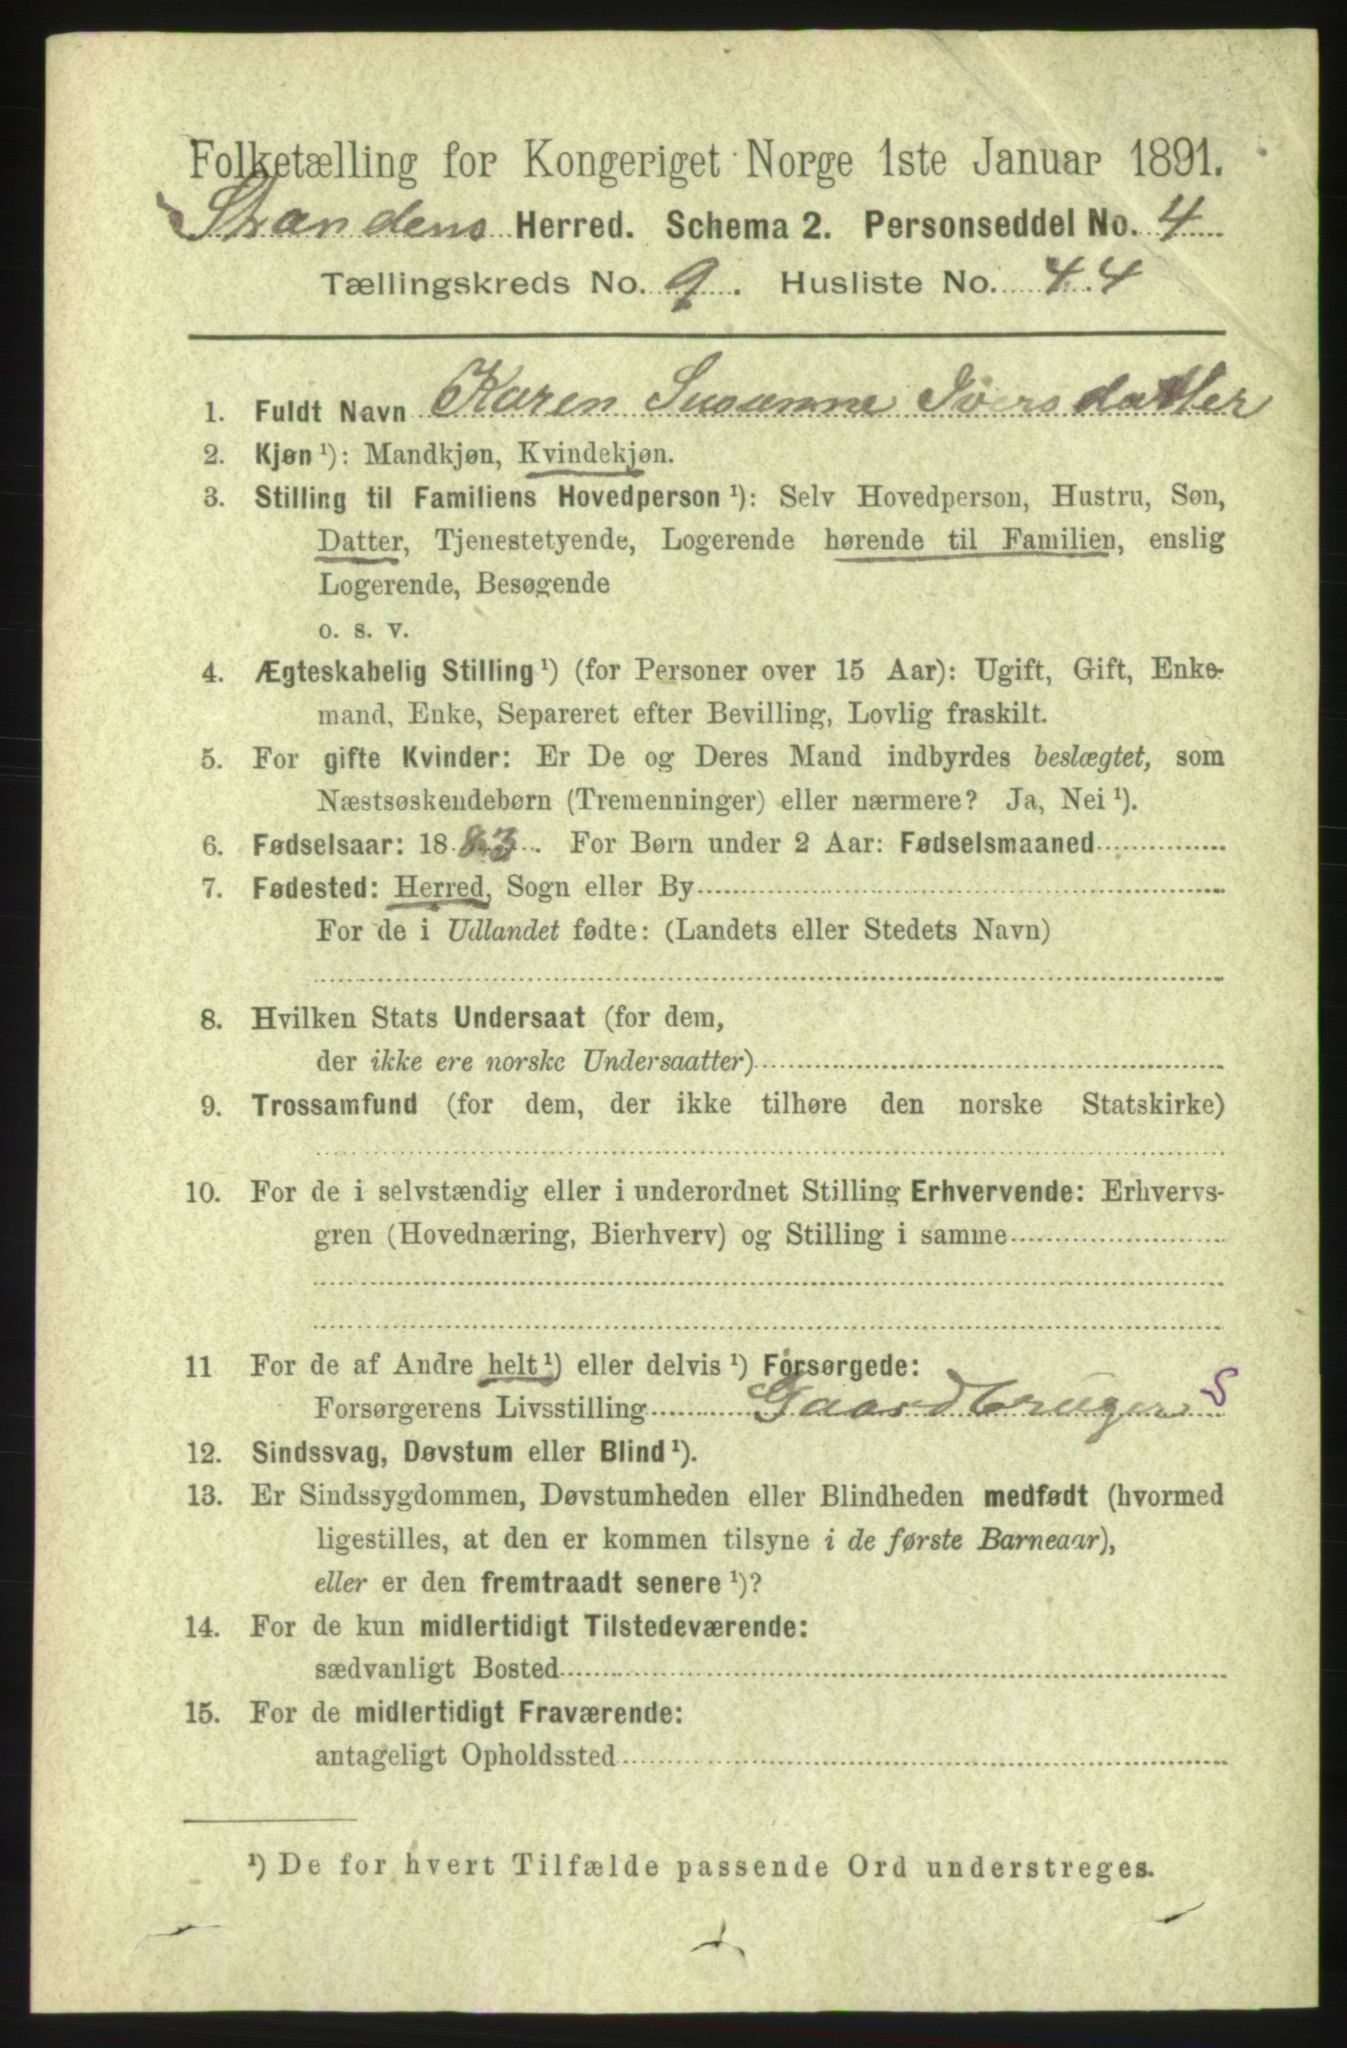 Folketælling for Kongeriget Norge 1ste Januar 1891.
Strandens Herred. Schema 2. Personseddel No. 4
Tællingskreds No. 9. Husliste No. 44
1. Fuldt Navn Karen Susanne Iversdatter
2. Kjøn ¹): Mandkjøn, Kvindekjøn.
3. Stilling til Familiens Hovedperson ¹): Selv Hovedperson, Hustru, Søn,
Datter, Tjenestetyende, Logerende hørende til Familien, enslig
Logerende, Besøgende
o. s. v.
4. Ægteskabelig Stilling ¹) (for Personer over 15 Aar): Ugift, Gift, Enke-
mand, Enke, Separeret efter Bevilling, Lovlig fraskilt.
5. For gifte Kvinder: Er De og Deres Mand indbyrdes beslægtet, som
Næstsøskendebørn (Tremenninger) eller nærmere? Ja, Nei ¹).
6. Fødselsaar: 1883. For Børn under 2 Aar: Fødselsmaaned
7. Fødested: Herred, Sogn eller By
For de i Udlandet fødte: (Landets eller Stedets Navn)
8. Hvilken Stats Undersaat (for dem,
der ikke ere norske Undersaatter)
9. Trossamfund (for dem, der ikke tilhøre den norske Statskirke)
10. For de i selvstændig eller i underordnet Stilling Erhvervende: Erhvervs-
gren (Hovednæring, Bierhverv) og Stilling i samme
11 For de af Andre helt ¹) eller delvis ¹) Forsørgede:
Forsørgerens Livsstilling Gaardbruger S
12. Sindssvag, Døvstum eller Blind ¹).
13. Er Sindssygdommen, Døvstumheden eller Blindheden medfødt (hvormed
ligestilles, at den er kommen tilsyne i de første Barneaar),
eller er den fremtraadt senere ¹)?
14. For de kun midlertidigt Tilstedeværende:
sædvanligt Bosted
15. For de midlertidigt Fraværende:
antageligt Opholdssted
¹) De for hvert Tilfælde passende Ord understreges.